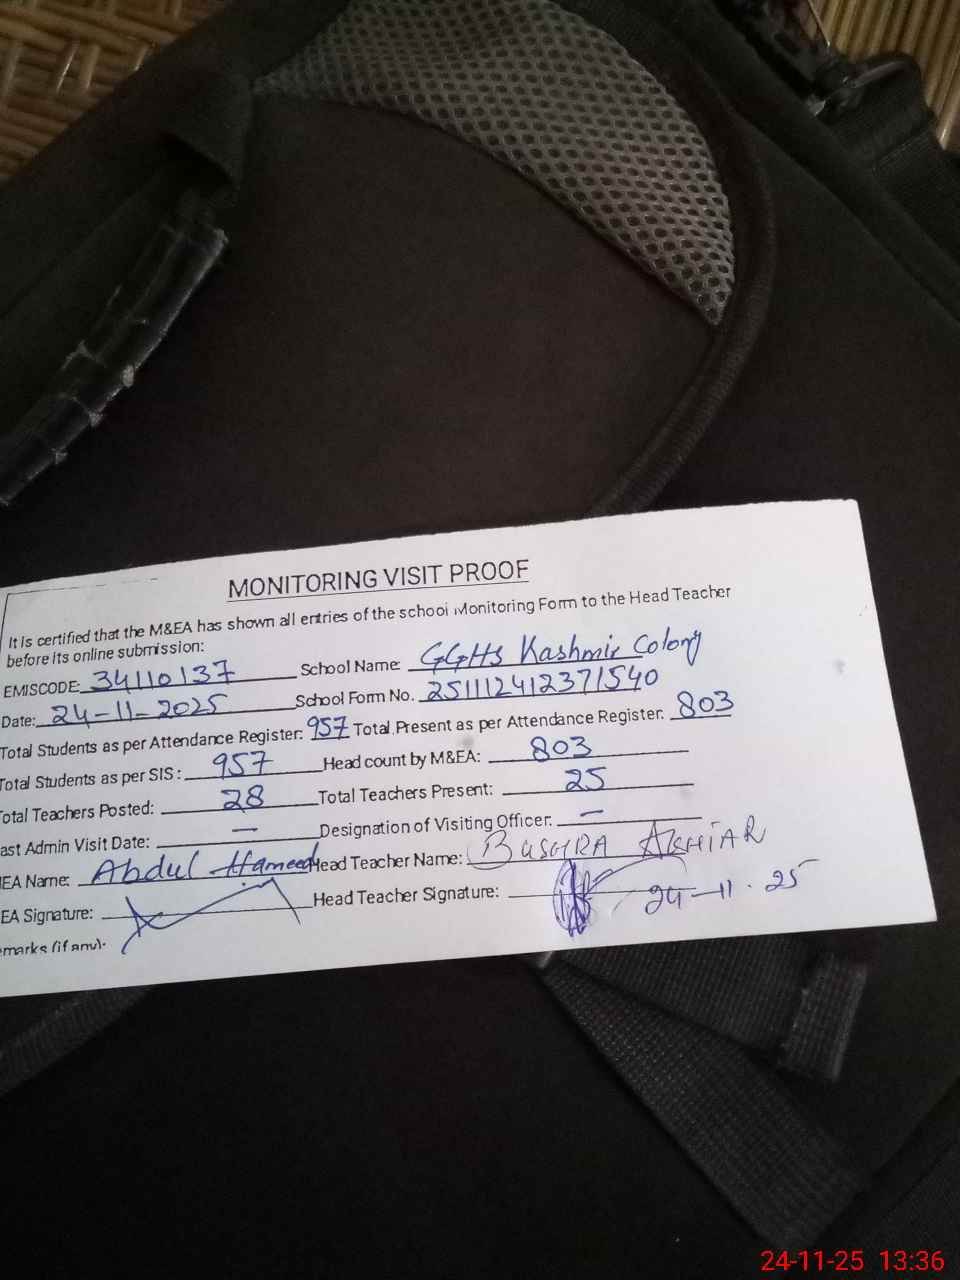 MONITORING VISIT PROOF
It is certified that the M&EA has shown all entries of the school Monitoring Form to the Head Teacher
before its online submission:
EMISCODE: 34110137 School Name: GGHS Kashmir Colony
Date: 24-11-2025 School Form No. 251112412371540
Total Students as per Attendance Register: 957 Total Present as per Attendance Register: 803
Total Students as per SIS: 957 Head count by M&EA: 803
Total Teachers Posted: 28 Total Teachers Present: 25
ast Admin Visit Date: — Designation of Visiting Officer: —
EA Name: Abdul Hameed Head Teacher Name:
EA Signature: Head Teacher Signature: 24-11.25
marks (if any):
24-11-25 13:36